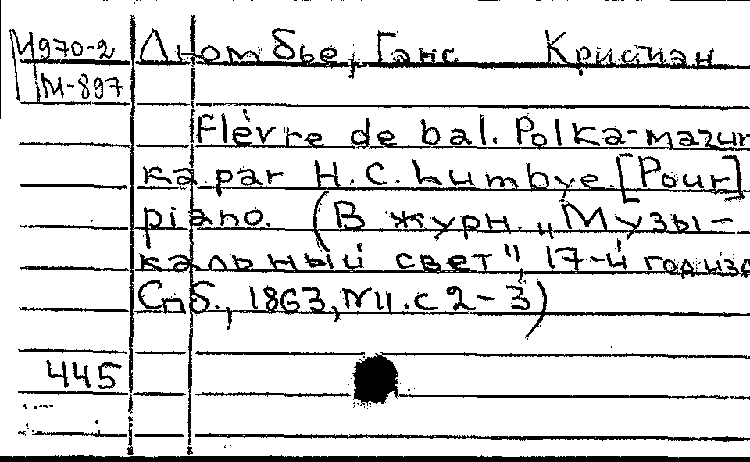 М970-2 Люмбье, Ганс Кристиан
М-897
Flèvre de bal. Polka-mazur
ka par H.C. Lumbye [Pour]
piano. (В журн. „Музы-
кальный свет", 17-й год изд
Спб., 1863, №11. с 2-3)
445